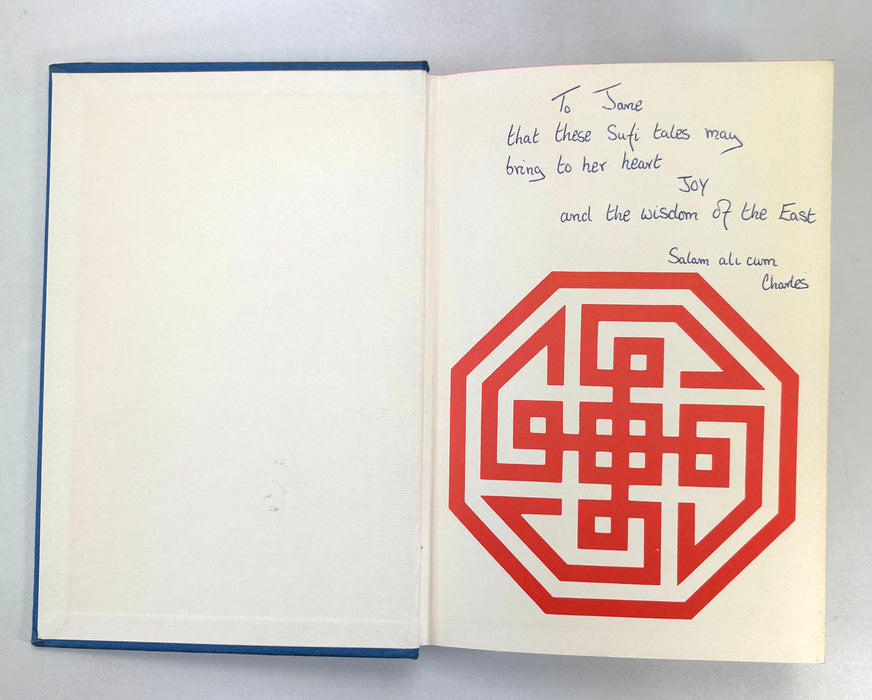 To Jane
that these Sufi tales may
bring to her heart
JOY
and the wisdom of the East
Salam ali cum
Charles